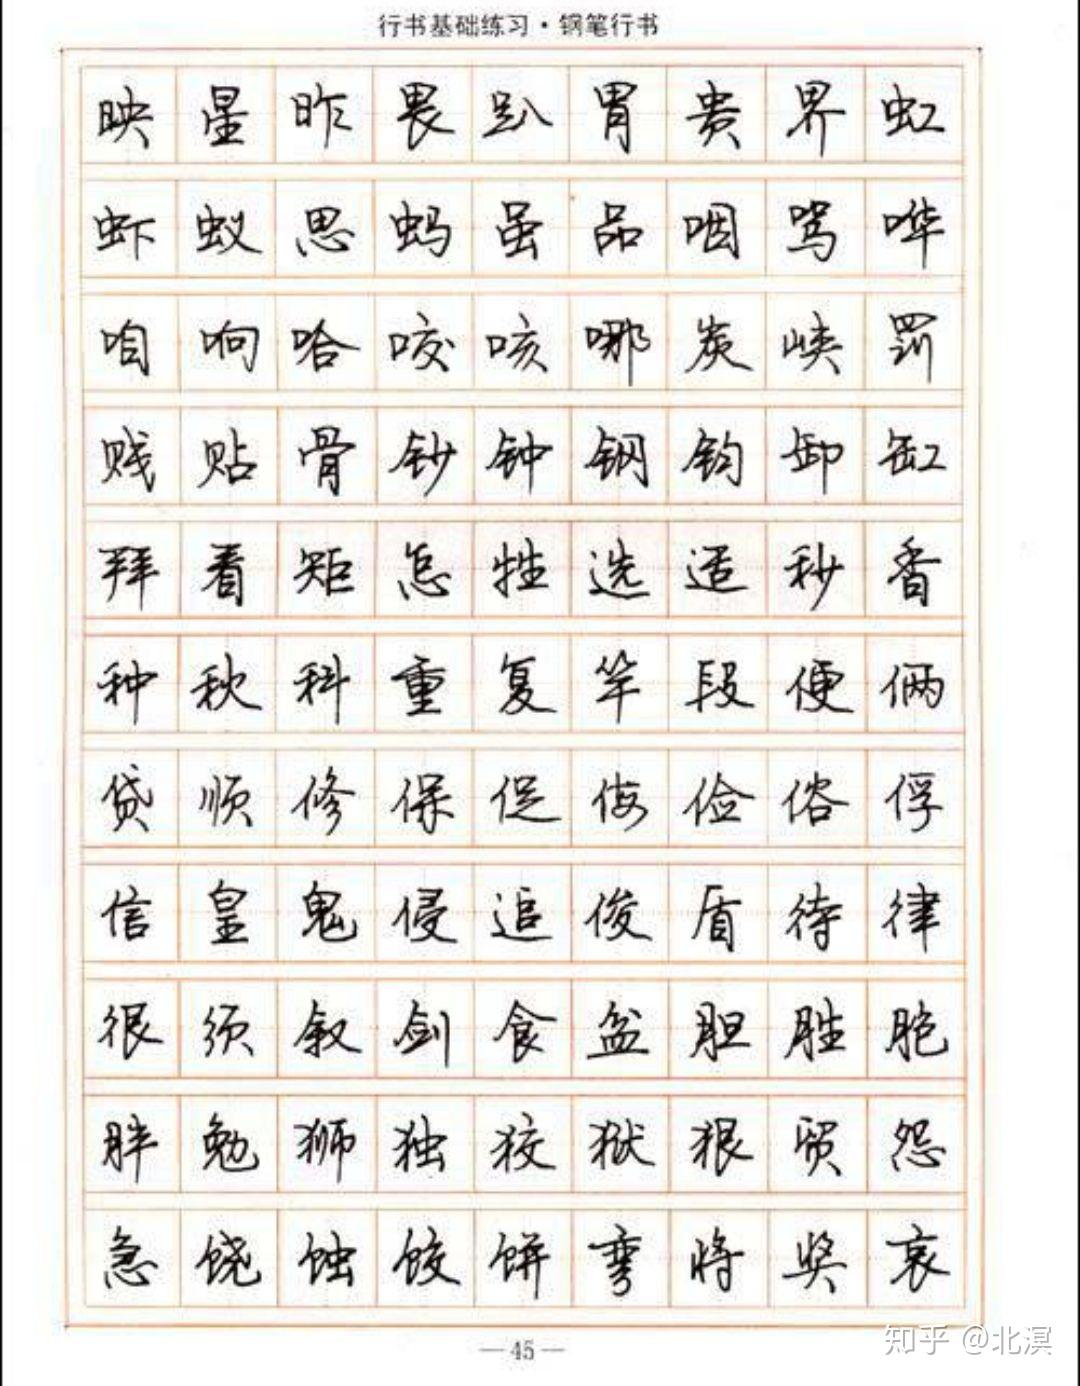 行书基础练习·钢笔行书
映星昨畏趴胃贵界虹
虾蚁思蚂虽品咽骂哗
咱响哈咬咳哪炭峡罚
贱贴骨钞钟钢钧卸缸
拜看矩怎牲选适秒香
种秋科重复竿段便俩
贷顺修保促侮俭俗俘
信皇鬼侵追俊盾待律
很须叙剑食盆胆胜胞
胖勉狮独狡狱狠贸怨
急饶蚀饺饼弯将奖哀
—45—
知乎 @北溟